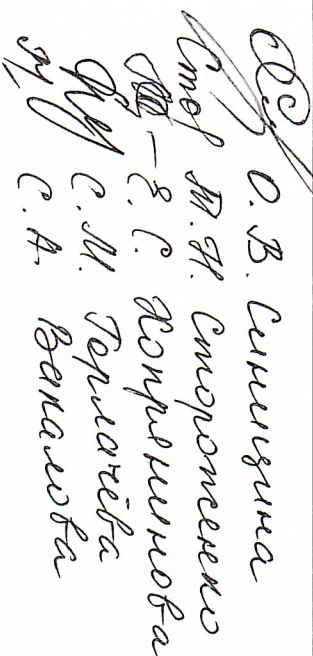 О. В. Синицина
Т. Н. Стороженко
Е. С. Хопрянинова
С. М. Горлачёва
С. А. Вакалова